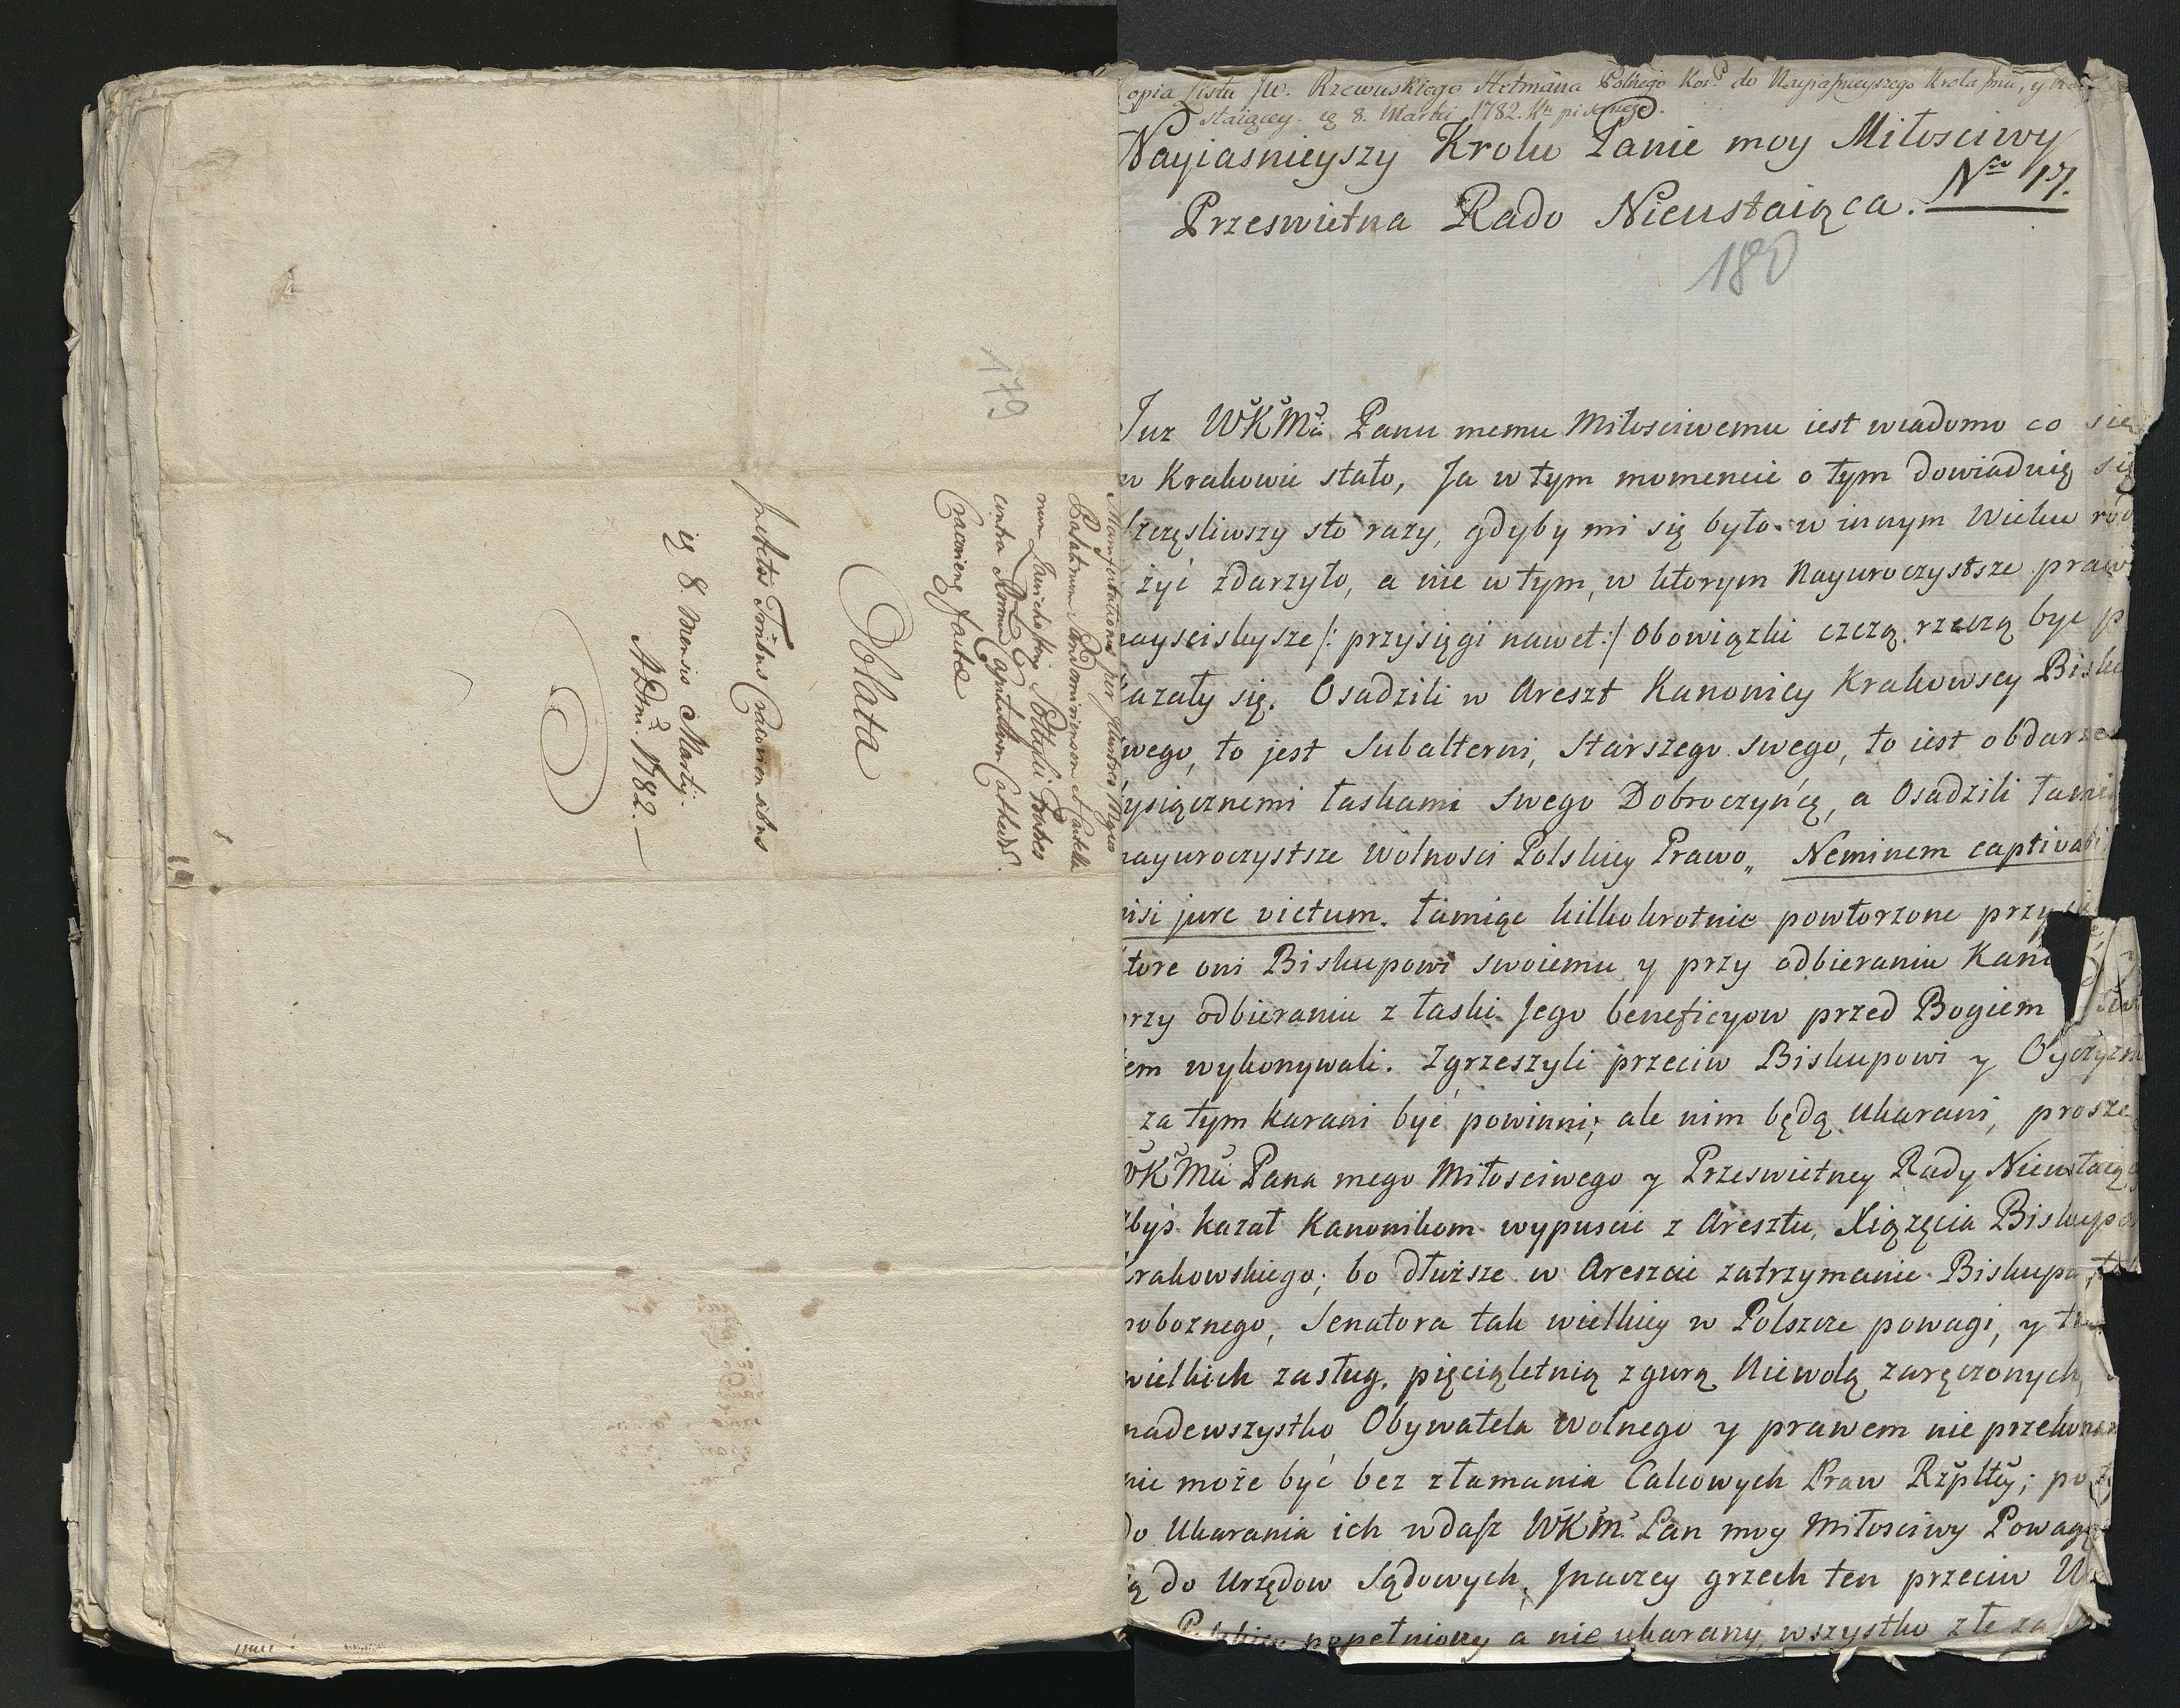 179
Manifestationis per Illustres Mgcos
Palatinum Sandomiriensem et Castella
num Zawichosten Sołtyki Fratres
contra Rndum Capitulum Cathedr.
Cracoviens factae
Oblata
infestis Finibus Cracoviensibus
is 8. Mensis Martij.
A Dni. 1782.
opia Listu JW. Rzewuskiego Hetmana Polnego Kor. do Nayiasnieyszego Krola Jmci, y
staiącey. 8. Martii 1782. pisanego.
Nayiasnieyszy Krolu Panie moy Miłosciwy
Nro 17.
Przeswietna Rado Nieustaiąca.
180
Juz WKMci Panu memu Miłosciwemu iest wiadomo co sie
w Krakowie stało, Ja w tym momencie o tym dowiaduię się
szczęsliwszy sto razy, gdyby mi się było w innym Wieku rod
żyć zdarzyło, a nie w tym, w ktorym Nayuroczystsze praw
nayscislysze /: przysięgi nawet :/ Obowiązki czczą rzeczą być p
kazały się. Osadzili w Areszt Kanonicy Krakowscy Bisku
swego, to jest Subalterni, Starszego swego, to iest obdarze
tysiącznemi łaskami Swego Dobroczyńcę, a Osadzili łamią
nayuroczystsze Wolnosci Polskiey Prawo „ Neminem captivabi
nisi jure victum. łamiąc kilkokrotnie powtorzone przysię
ktore oni Biskupowi swoiemu y przy odbieraniu Kano
przy odbieraniu z łaski Jego beneficyow przed Bogiem
tem wykonywali. Zgrzeszyli przeciw Biskupowi y Oyczyzn
za tym karani być powinni; ale nim będą Ukarani, prosze
WKMci Pana mego Miłosciwego y Przeswietney Rady Nieustaiąc
żbyś kazał Kanonikom wypuscić z Aresztu, Xiązęcia Biskupa
Krakowskiego; bo dłuższe w Areszcie zatrzymanie Biskupa
pobożnego, Senatora tak wielkiey w Polszcze powagi, y t
wielkich zasług, pięcią letnią zgurą Niewolą zaręczonych,
nadewszystko Obywatela Wolnego y prawem nie przekonan
nie może być bez złamania Całkowych Praw Rzpltey; po
do Ukarania ich wdasz WKM. Pan moy Miłosciwy Powagę
ą do Urzędow Sądowych, Jnaczey grzech ten przeciw W
Polskiey popełniony a nie ukarany, wszystko złe za